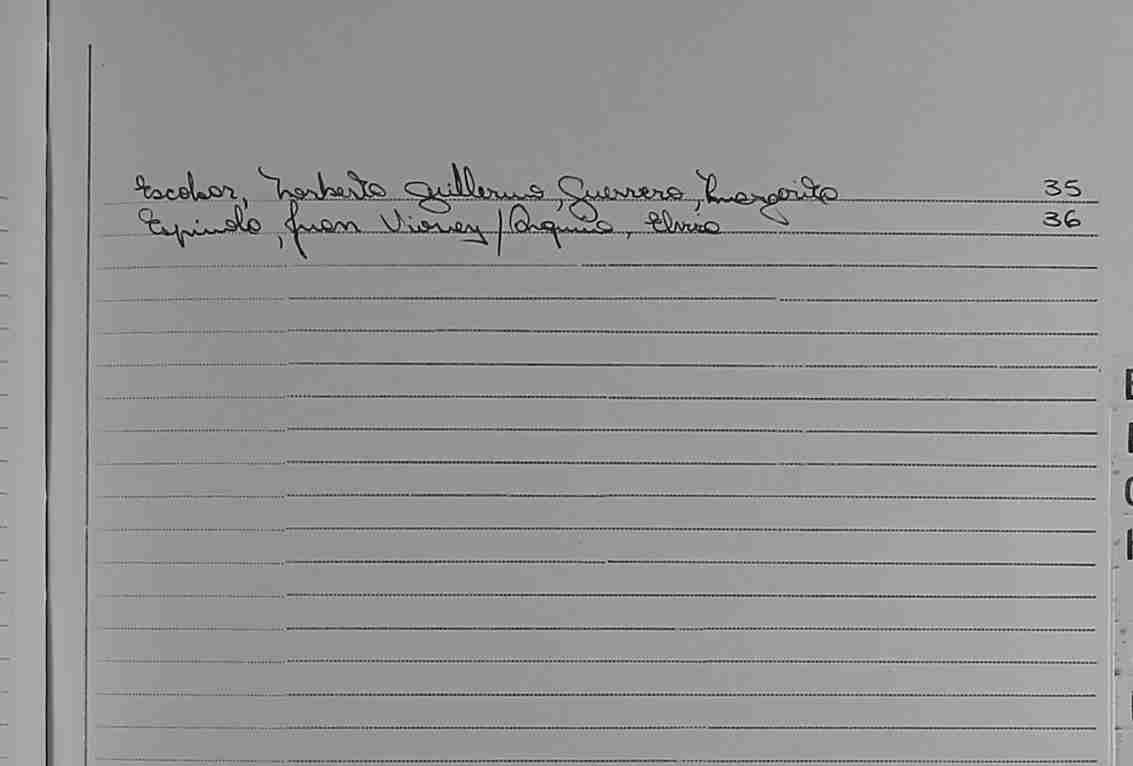 Escobar, Norberto Guillermo, Guerrero, Margarita 35
Espindola, Juan Vianey / Aquino, Elvira 36
E